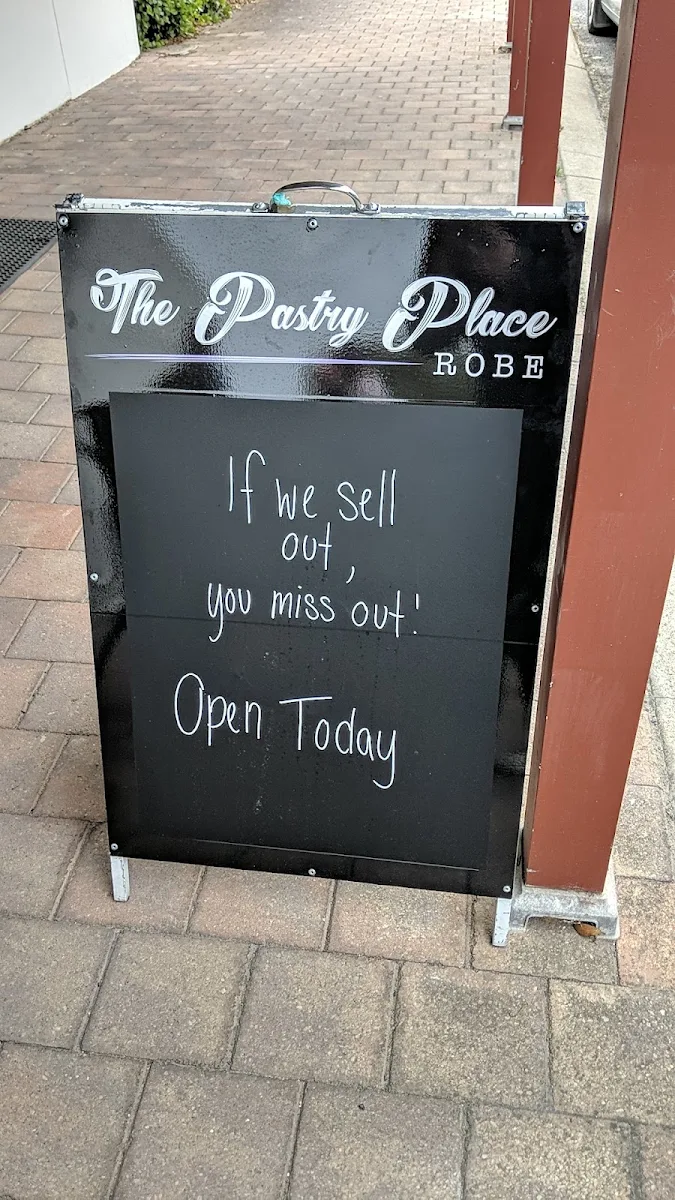 The Pastry Place
ROBE
If we sell
out,
you miss out!
Open Today